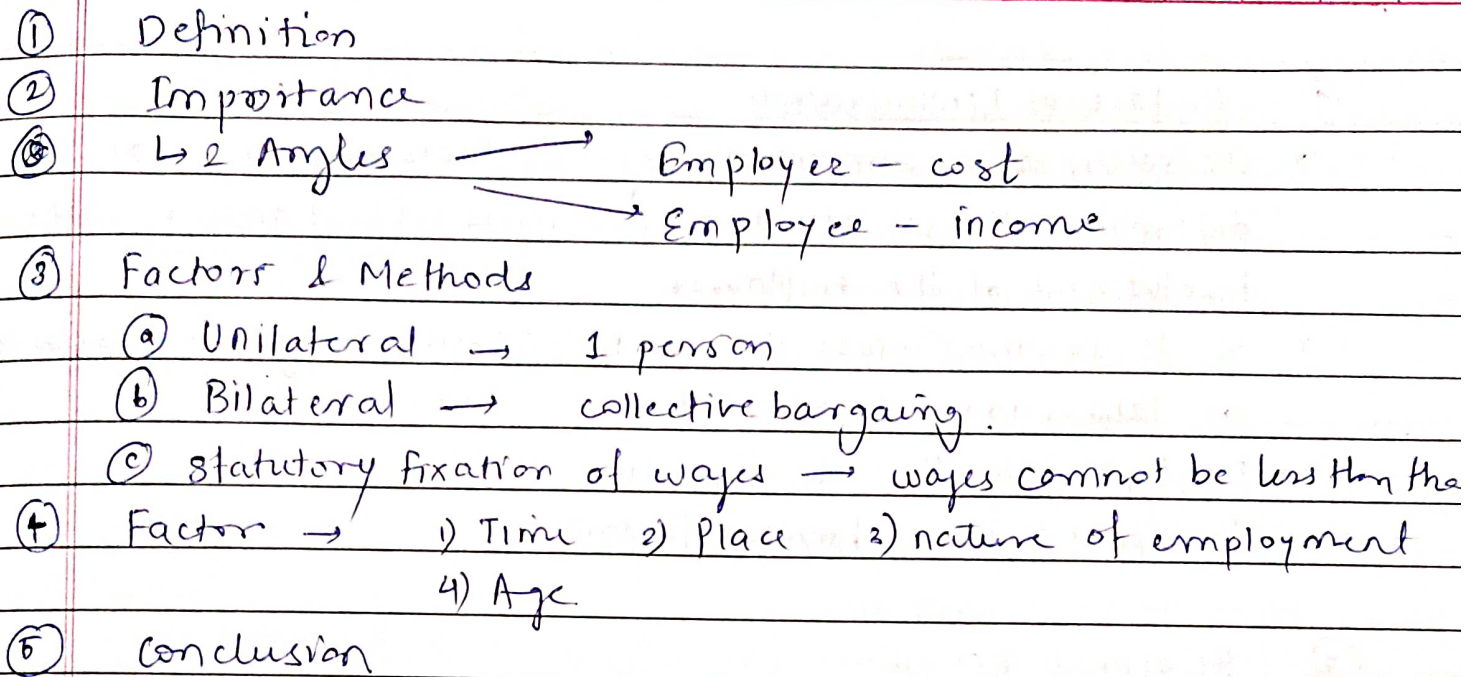 ① Definition
② Importance
↳ 2 Angles → Employer cost
→ Employee - income
③ Factors & Methods
ⓐ Unilateral → 1 person
ⓑ Bilateral → collective bargaing.
ⓒ statutory fixation of wages → wages cannot be less than tha
④ Factor → 1) Time 2) Place 3) nature of employment
4) Age
⑤ conclusion